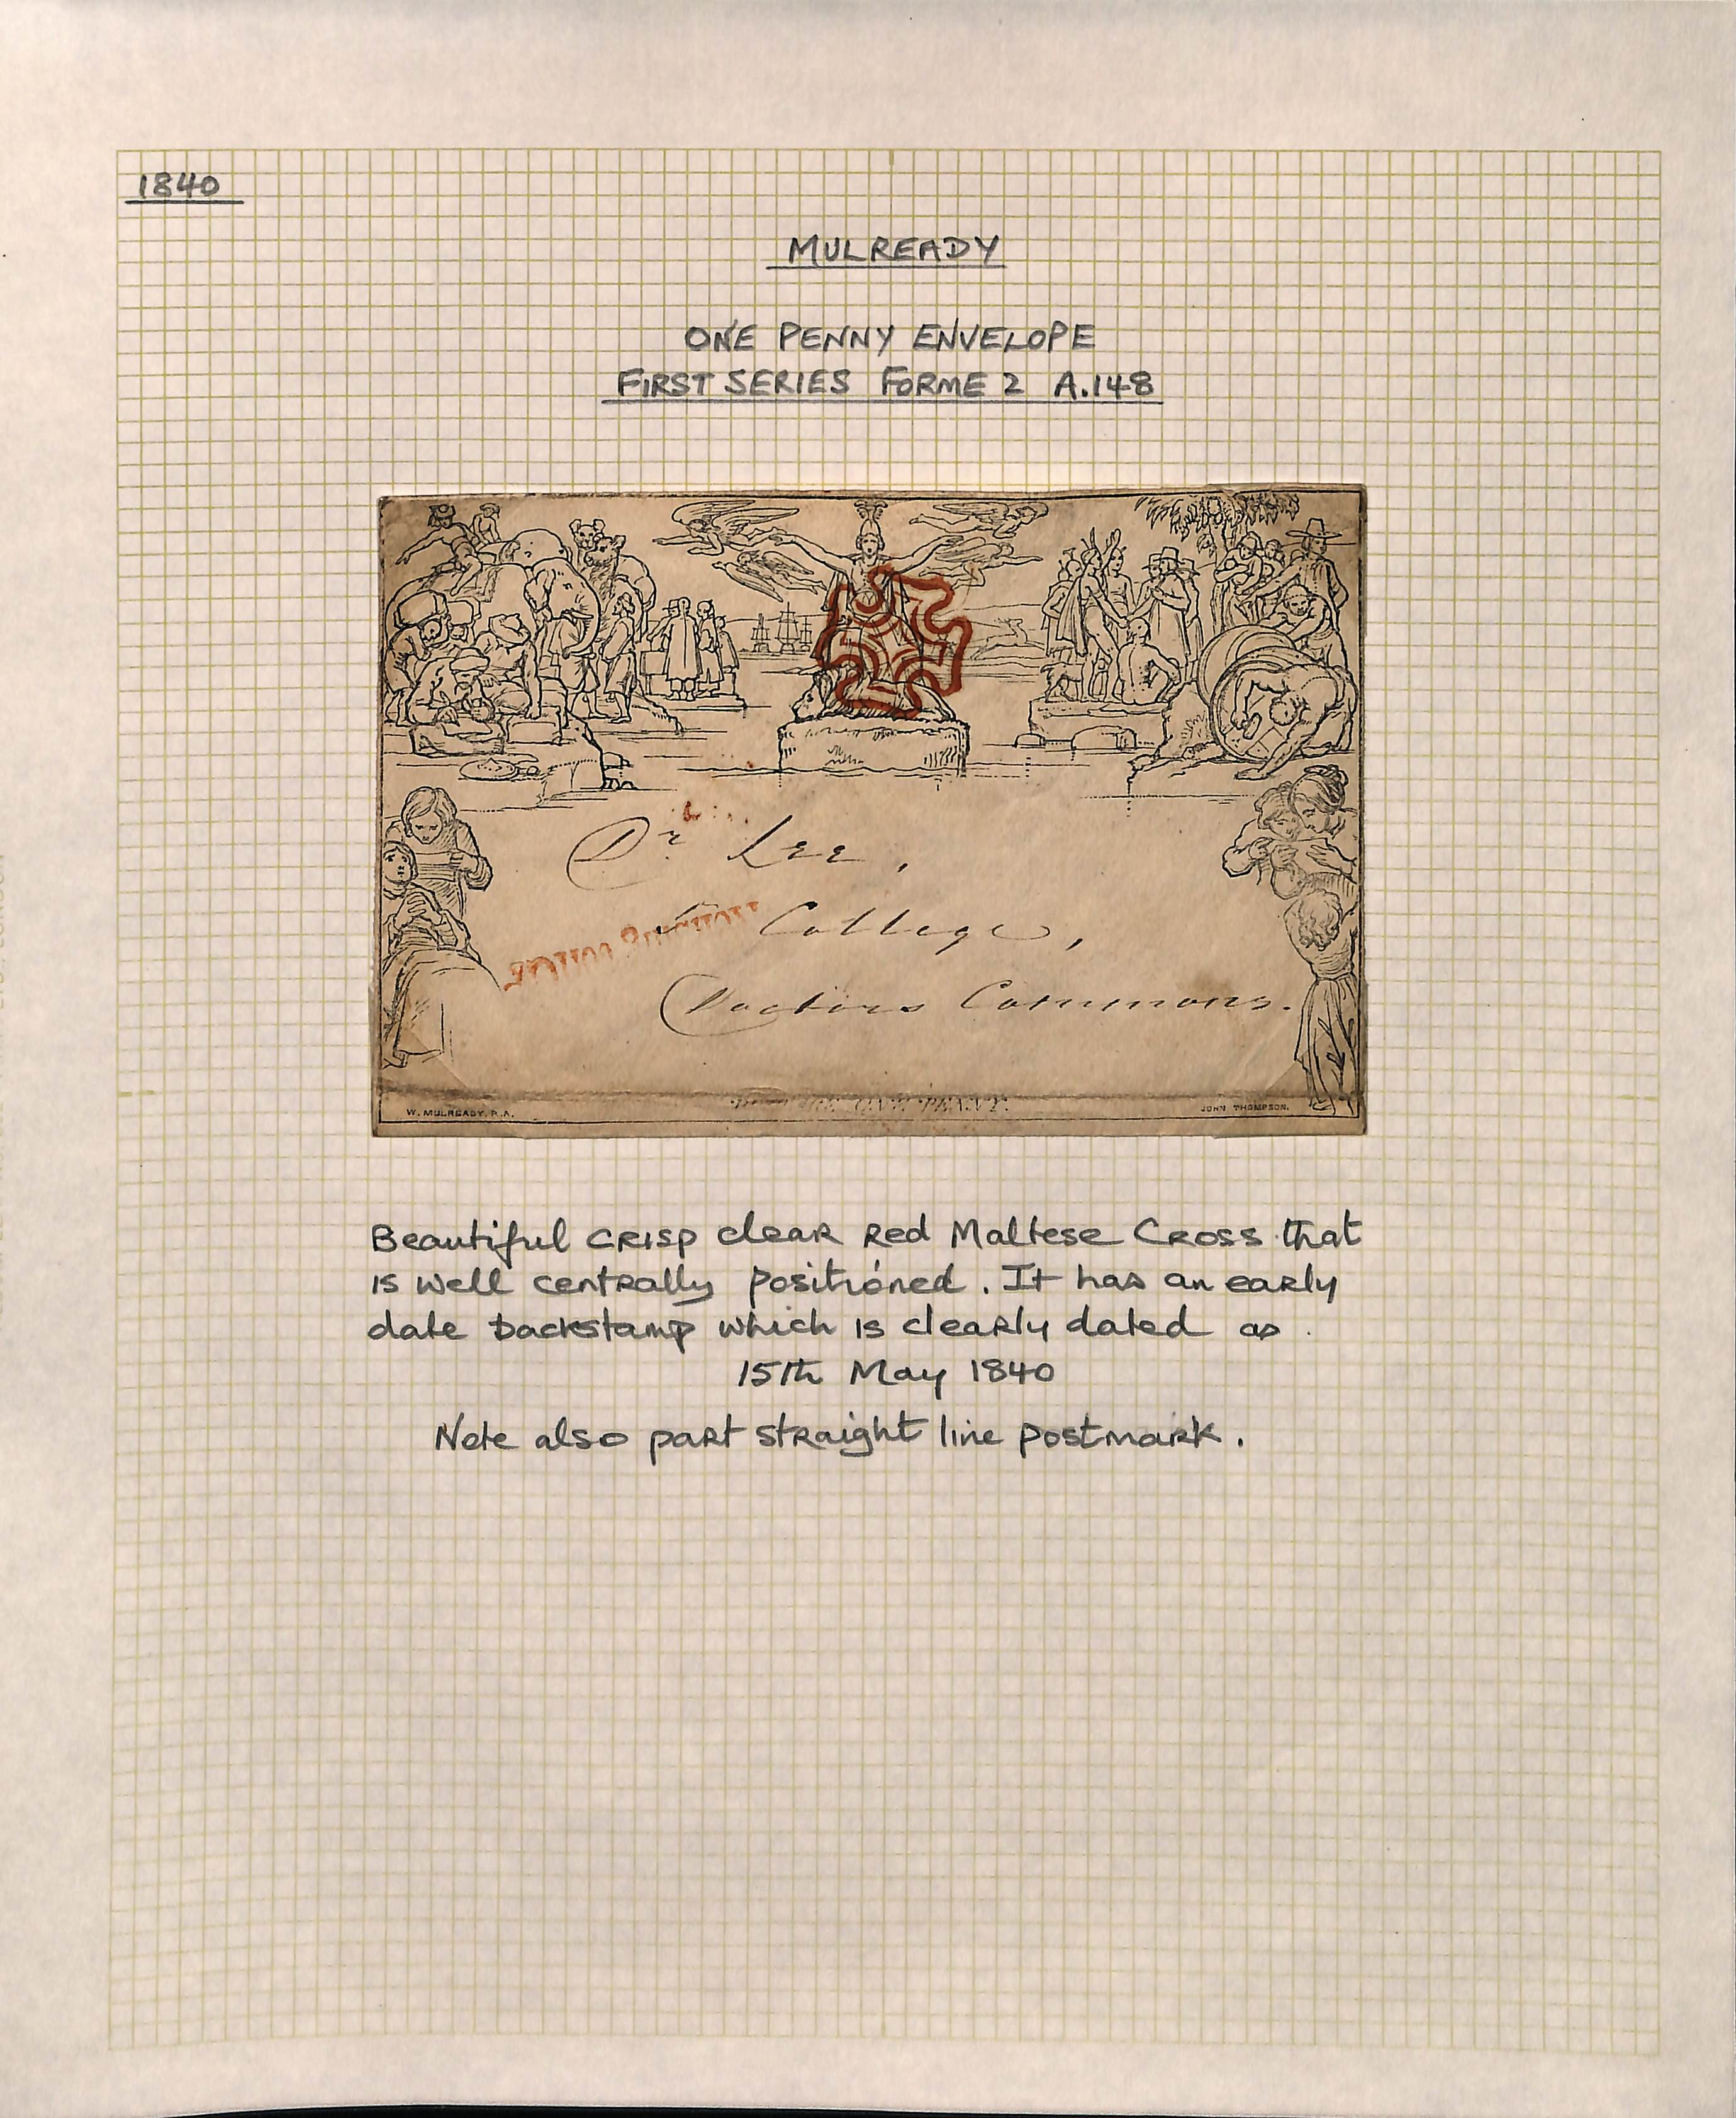 1840
MULREADY
ONE PENNY ENVELOPE
FIRST SERIES FORME 2 A.148
Dr. Lee,
College,
Doctors Commons.
POSTAGE ONE PENNY.
W. MULREADY, R.A.
JOHN THOMPSON.
Beautiful crisp clear red Maltese Cross that
is well centrally positioned. It has an early
date backstamp which is clearly dated as
15th May 1840
Note also part straight line postmark.